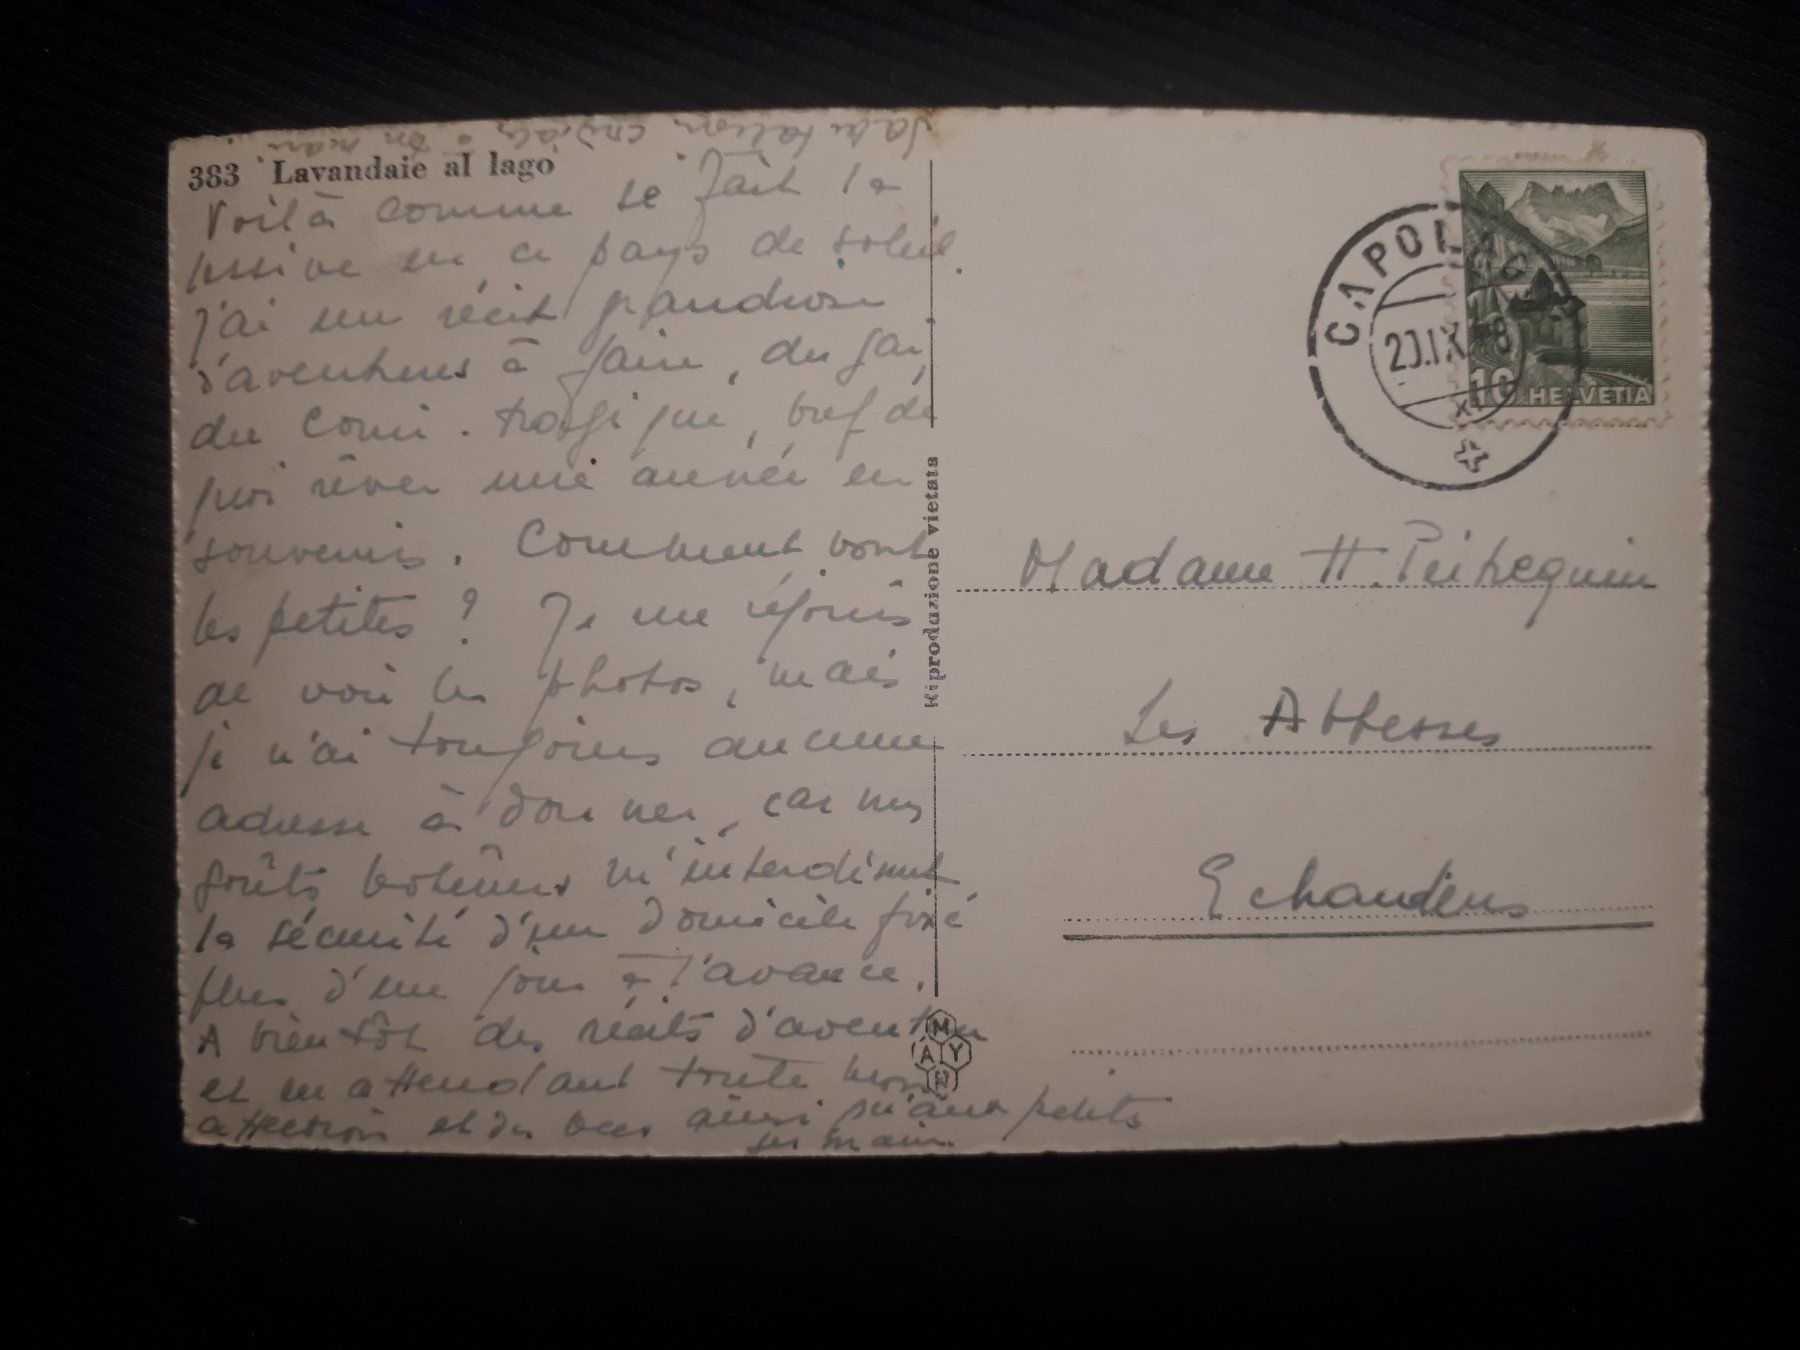 383 Lavandaie al lago
Voilà comme se fait la
lessive en ce pays de soleil.
J'ai un récit grandiose
d'aventures à faire, du gai,
du comi-tragique, bref de
quoi rêver une année en
souvenirs. Comment vont
les petites ? Je me réjouis
de voir les photos, mais
je n'ai toujours aucune
adresse à donner, car mes
goûts bohèmes m'interdisent
la sécurité d'un domicile fixé
plus d'un jour à l'avance.
A bientôt des récits d'aventure
et en attendant toute mon
affection et des becs ainsi qu'aux petits
Salutations cordiales à ton mari
Riproduzione vietata
MAYR
CAPOLAGO
20.IX.48
XI
10 HELVETIA
Madame H. Peitrequin
Les Abbesses
Echandens